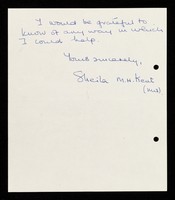 I would be grateful to
know of any way in which
I could help.
Yours sincerely,
Sheila M.H.
(Mrs)